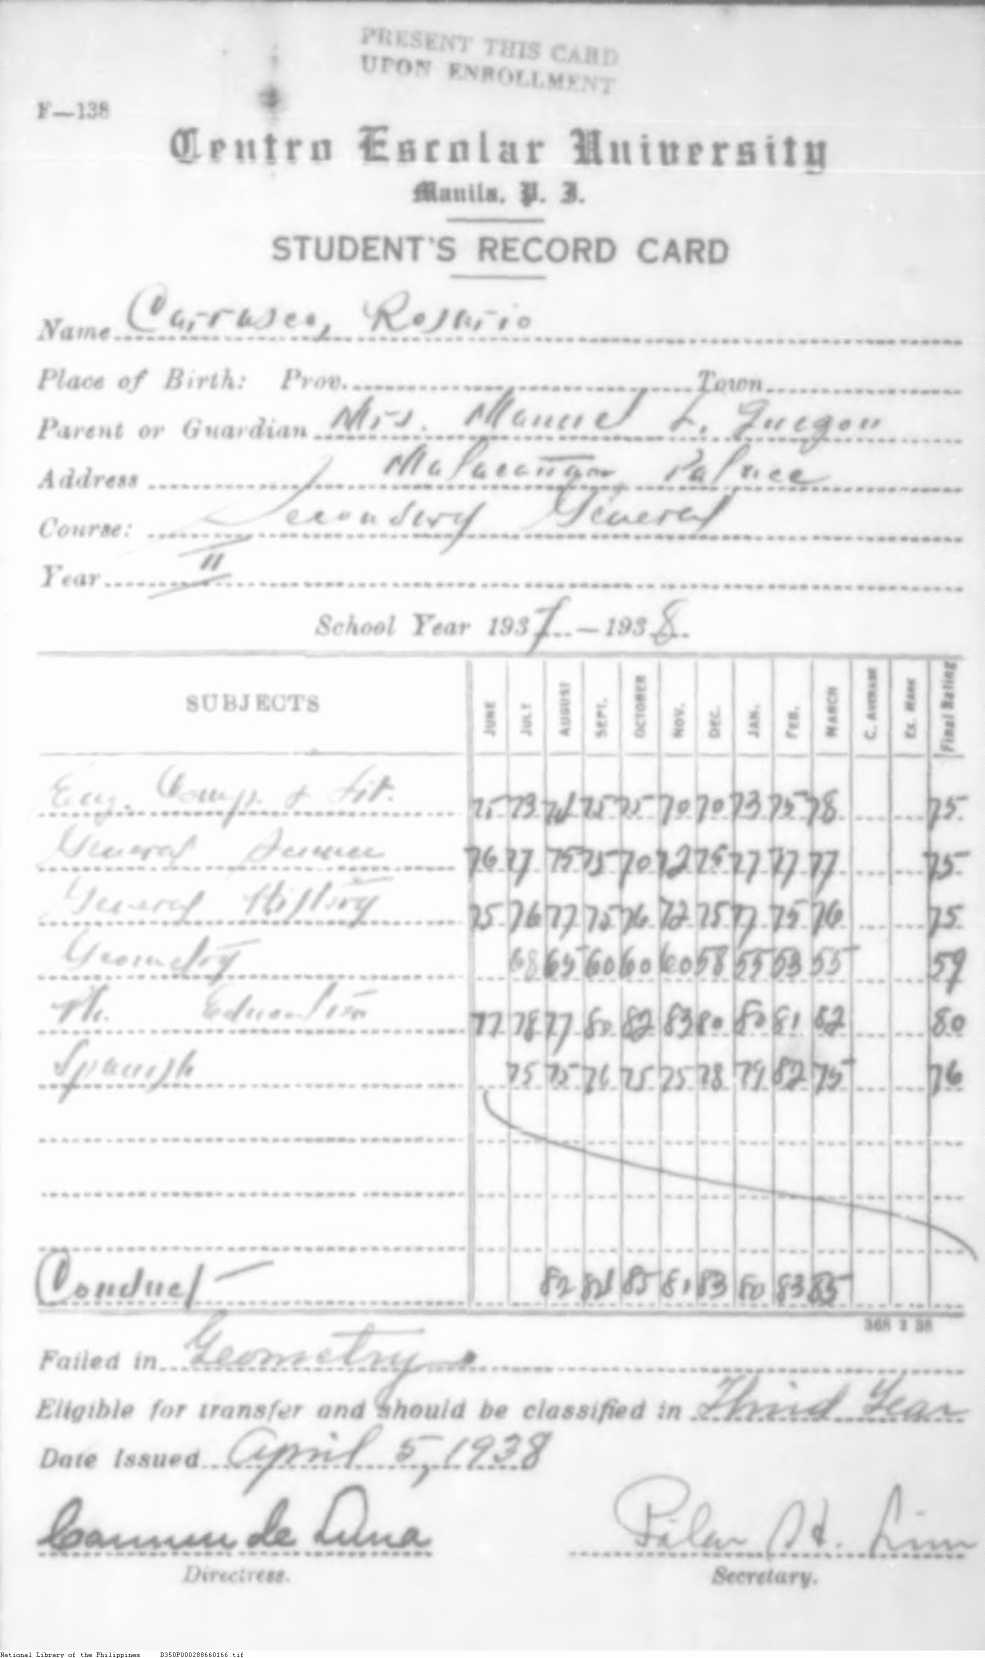 PRESENT THIS CARD
UPON ENROLLMENT
F—138
Centro Escolar University
Manila, P. I.
STUDENT'S RECORD CARD
Name Carrasco, Rosario
Place of Birth: Prov. Town
Parent or Guardian Mrs. Manuel L. Quezon
Address Malacañan Palace
Course: Secondary General
Year II
School Year 1937—1938
SUBJECTS JUNE JULY AUGUST SEPT. OCTOBER NOV. DEC. JAN. FEB. MARCH C. AVERAGE Ex. MARK Final Rating
Eng. Comp. & Lit. 75 73 74 75 75 70 70 73 75 78 75
General Science 76 77 75 75 70 72 75 77 77 77 75
General History 75 76 77 75 76 72 75 77 75 76 75
Geometry 68 65 60 60 60 58 55 53 55 59
Ph. Education 77 78 77 80 82 83 80 80 81 82 80
Spanish 75 75 76 75 75 78 79 82 75 76
Conduct 82 84 85 81 83 80 83 85
368 1 38
Failed in Geometry
Eligible for transfer and should be classified in Third Year
Date Issued April 5, 1938
Carmen de Luna Pilar H. Lim
Directress. Secretary.
National Library of the Philippines D350P000288660166.tif